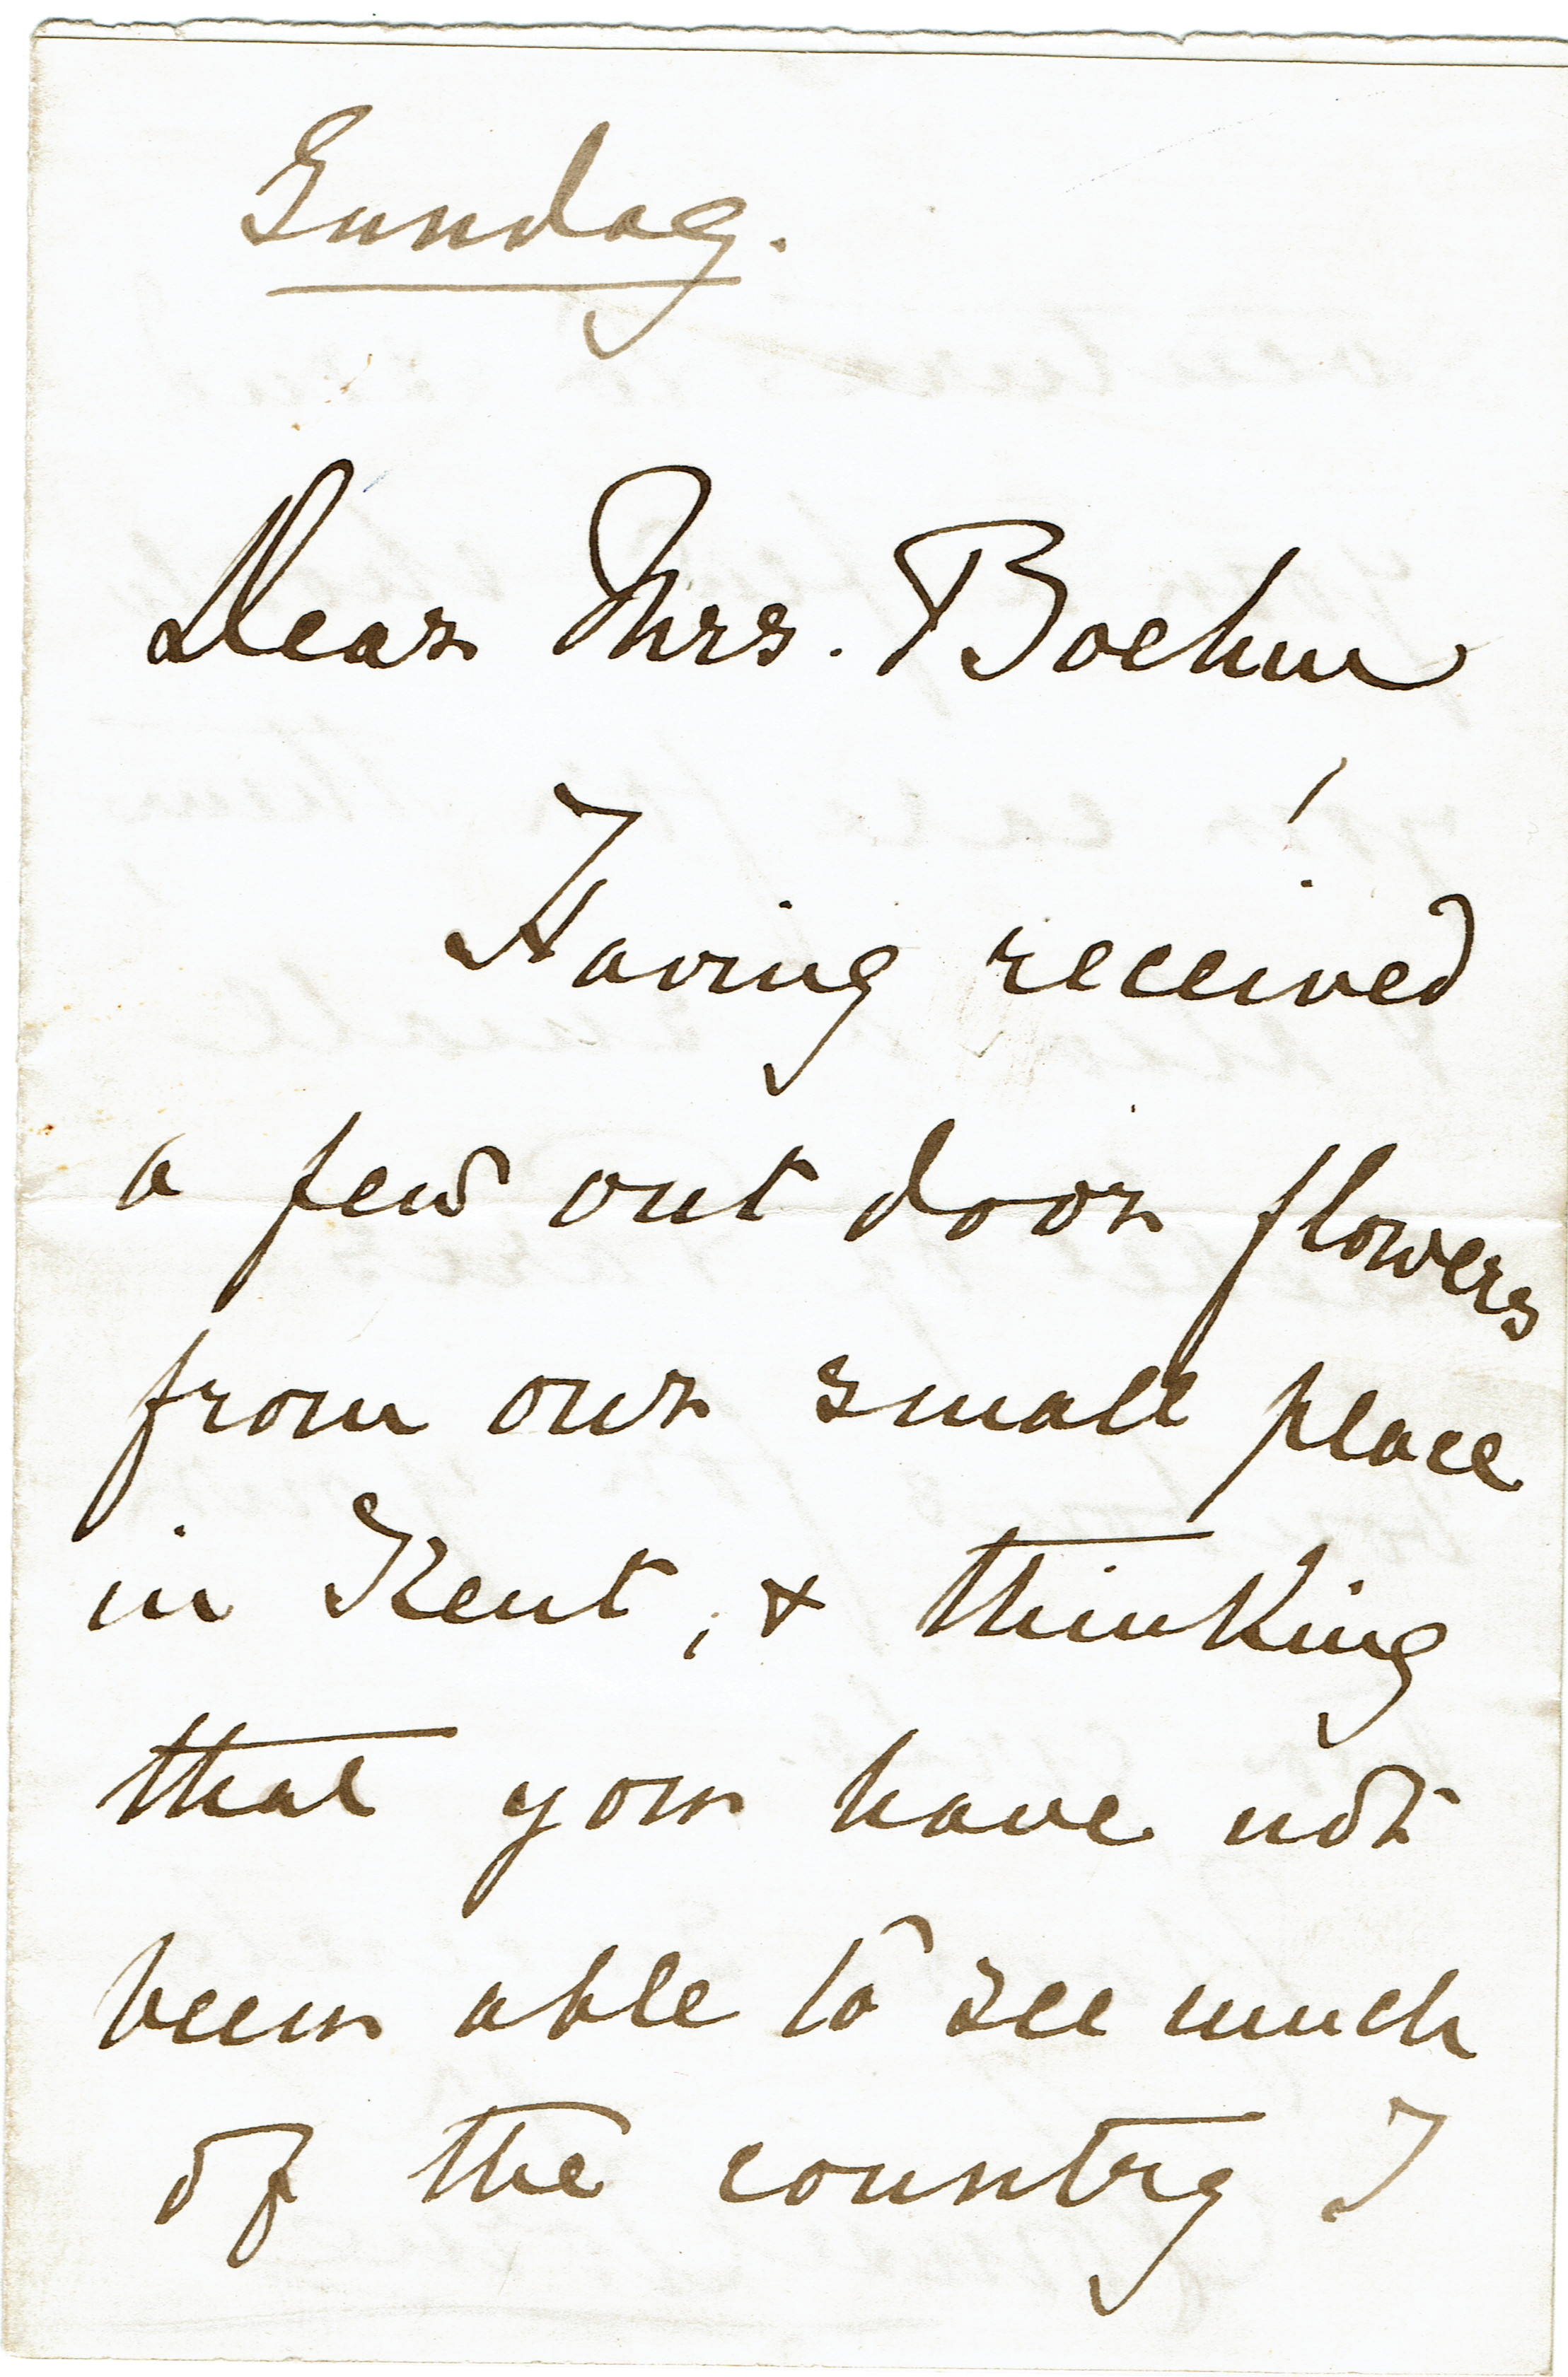 Sunday.
Dear Mrs. Boehm
Having received
a few out door flowers
from our small place
in Kent, & thinking
that you have not
been able to see much
of the country I